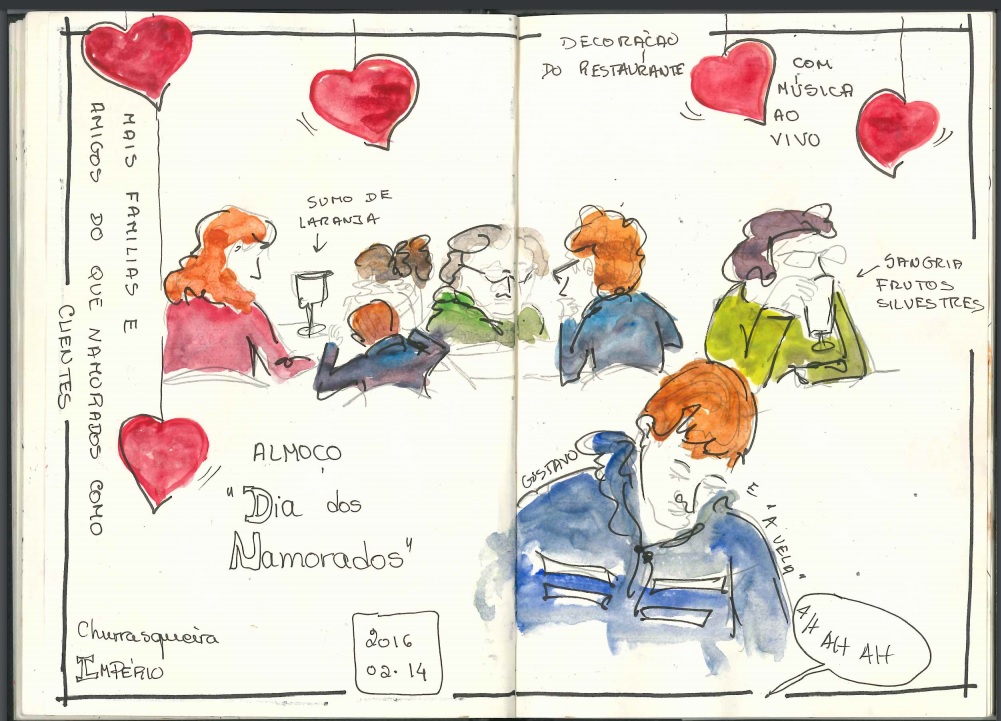 MAIS FAMILIAS E
AMIGOS DO QUE NAMORADOS COMO
CLIENTES
DECORAÇAO
DO RESTAURANTE
COM
MÚSICA
AO
VIVO
SUMO DE
LARANJA
SANGRIA
FRUTOS
SILVESTRES
ALMOÇO
"Dia dos
Namorados"
GUSTAVO
E "A VELA"
AH AH AH
Churrasqueira
IMPÉRIO
2016
02.14